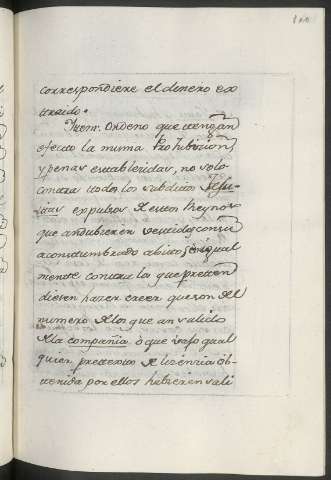 correspondiere el dinero ex
traido.
Item. Ordeno que tengan
efecto la misma Prohibicion
y penas establecidas, no solo
contra todos los subditos Jesu-
itas expulsos de estos Reynos
que andubieren vestidos con su
acostumbrado abito, è igual
mente contra los que preten
diesen hacer creer que son del
numero de los que an salido
de la compañia ò que vajo qual
quier pretexto de licencia ob-
tenida por ellos hubieren sali